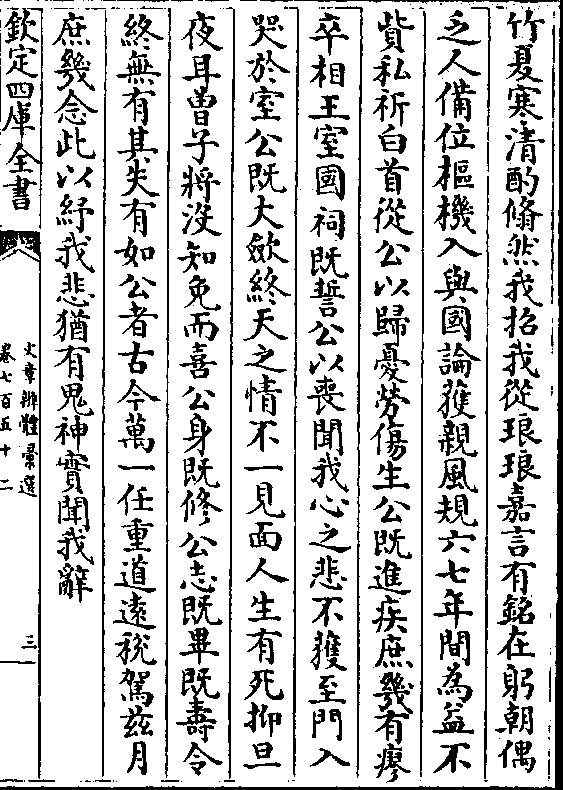 竹夏寒清酌翛然我招我從琅琅嘉言有銘在躬朝偶
乏人備位樞機入與國論獲親風規六七年間為益不
貲私祈白首從公以歸憂勞傷生公既進疾庶幾有瘳
卒相王室國祠既誓公以喪聞我心之悲不獲至門入
哭於室公既大斂終天之情不一見面人生有死抑旦
夜耳曾子將沒知免而喜公身既修公志既畢既壽令
終無有其失有如公者古今萬一任重道遠稅駕兹月
庶幾念此以紓我悲猶有鬼神實聞我辭
欽定四庫全書
文章辨體彙選
卷七百五十二
三